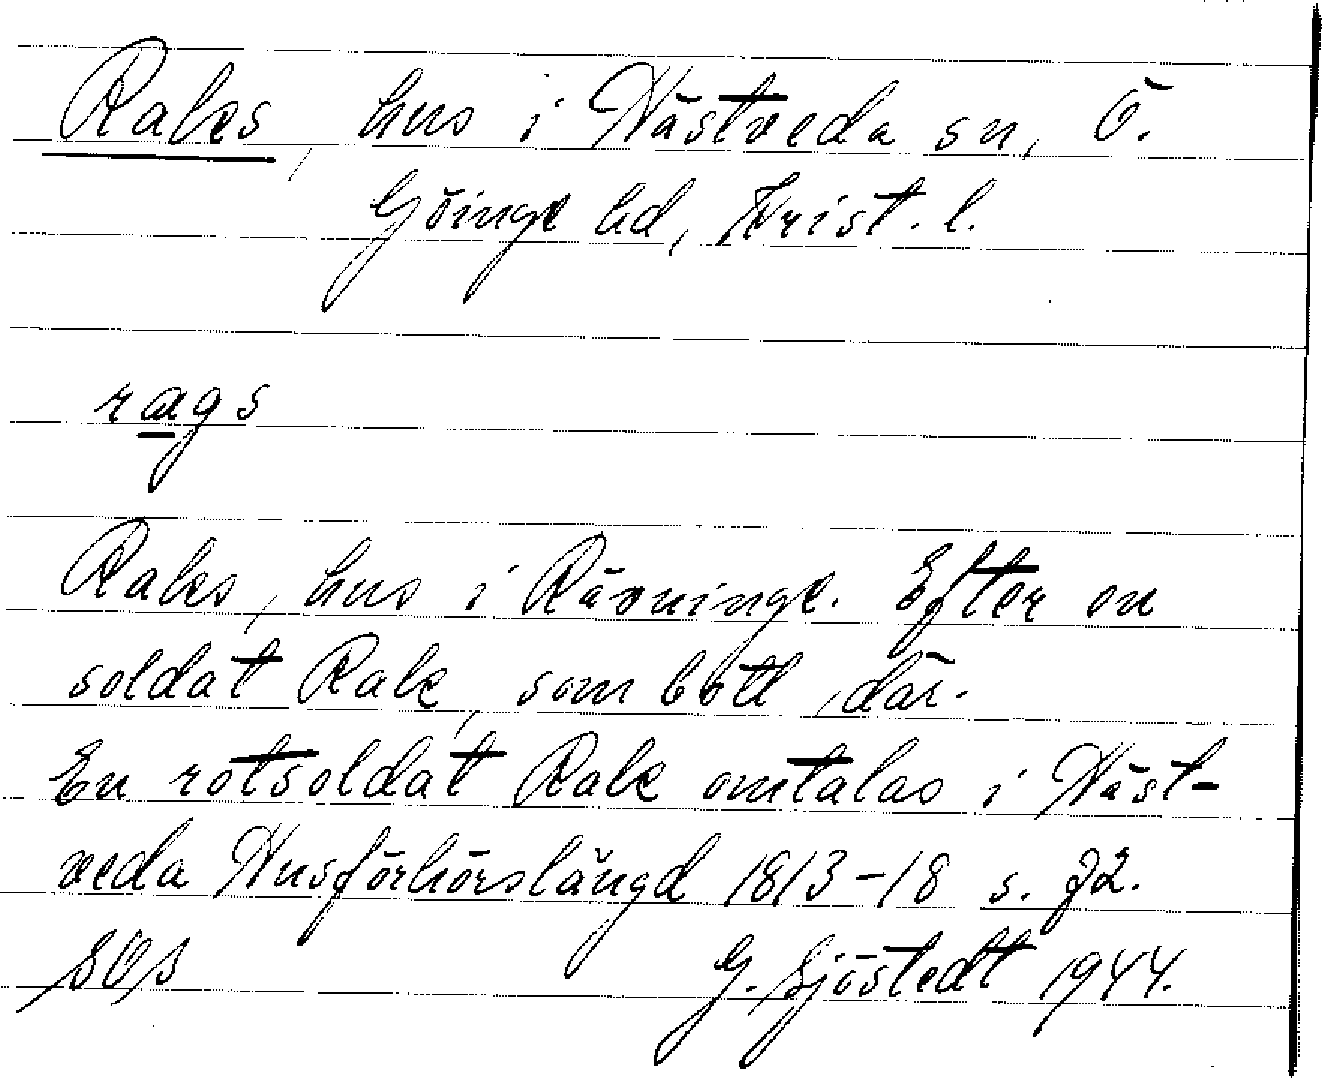 Raks, hus i Hästveda sn, Ö.
Göinge hd, Krist. l.
rags
Raks, hus i Rävninge. Efter en
soldat Rak, som bott där.
En rotsoldat Rak omtalas i Häst-
veda Husförhörslängd 1813-18 s. 72.
G. Sjöstedt 1944.